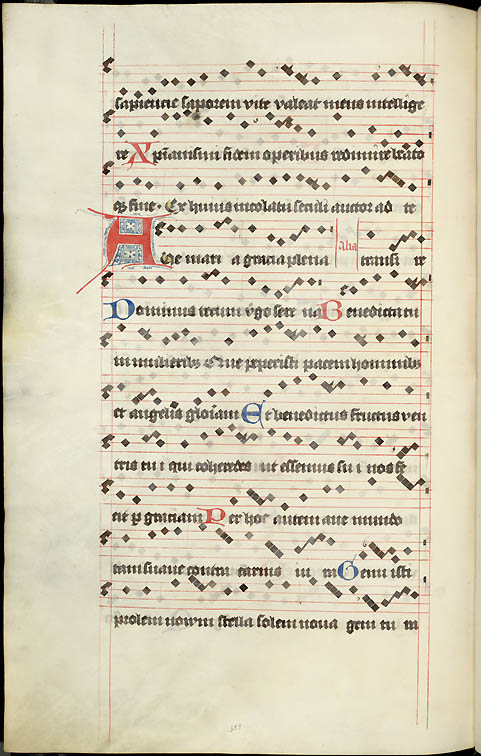 sapiencie saporem vite valeat mens intellige
re Xpianismi fidem operibus redimire beato
qz fine · Ex huius incolatu seculi auctor ad te
Ave mari a gracia plena Alia transi re
Dominus tecum vgo sere na Benedicta tu
in mulieribz Que peperisti pacem hominibz
et angelis gloriam Et benedictus fructus ven
tris tu i qui coheredes ut essemus su i nos fe
cit p graciam Per hoc autem aue mundo
tam suaue contra carnis iu ra Genu isti
prolem novum stella solem noua geni tu ra